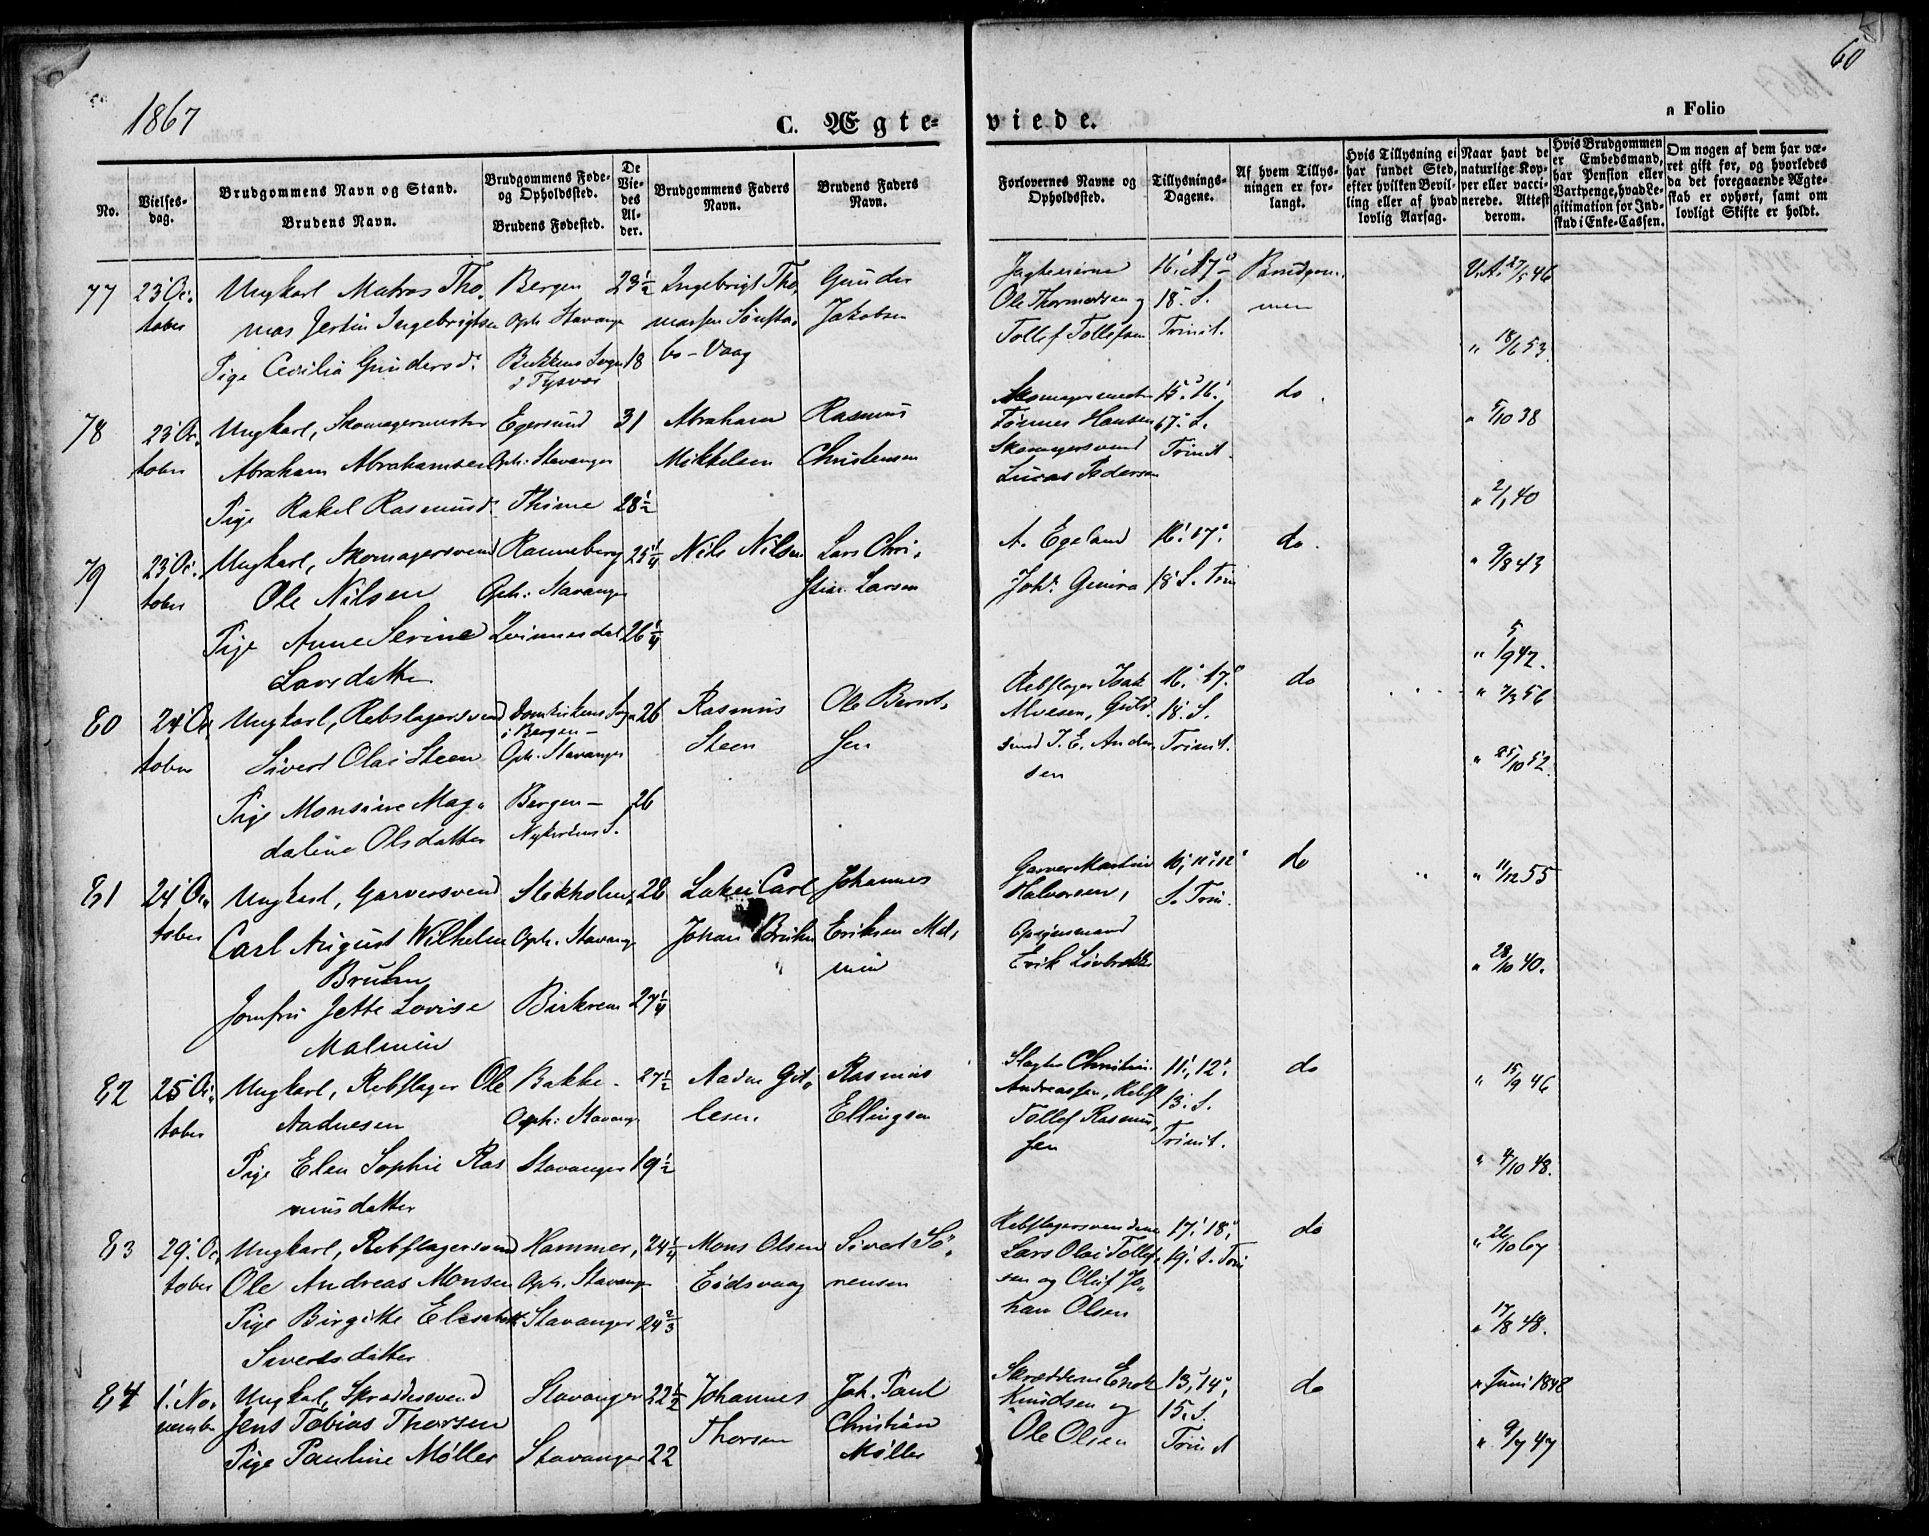 1867
60
C. Ægte-
viede.
a Folio
No.
Vielses-
dag.
Brudgommens Navn og Stand.
Brudens Navn.
Brudgommens Føde-
og Opholdssted.
Brudens Fødested.
De
Vie-
des
Al-
der.
Brudgommens Faders
Navn.
Brudens Faders
Navn.
Forlovernes Navne og
Opholdssted.
Tillysnings-
Dagene.
Af hvem Tillys-
ningen er for-
langt.
Hvis Tillysning ei
har fundet Sted,
efter hvilken Bevil-
ling eller af hvad
lovlig Aarsag.
Naar havt de
naturlige Kop-
per eller vacci-
nerede. Attest
derom.
Hvis Brudgommen
er Embedsmand,
har Pension eller
Vartpenge, hvad Le-
gitimation for Ind-
skud i Enke-Cassen.
Om nogen af dem har væ-
ret gift før, og hvorledes
da det foregaaende Ægte-
skab er ophørt, samt om
lovligt Skifte er holdt.
77
23' Oc-
tober
Ungkarl Matros Tho-
mas Jertin Ingebrigtsen
Pige Cecilia Gundersd.
Bergen
Oph. Stavanger
Bukkens Sogn
i Tysvær
23 1/2
18
Ingebrigt Tho-
massen Sønstø-
bø-Vaag
Gunder
Jakobsen
Jagteierne
Ole Thormodsen og
Tollef Tollefsen
16' 17-
18. S.
Trinit.
Brudgom-
men
V.A. 27/5 46
" 18/6 53
78
23' Oc-
tober
Ungkarl, Skomagermester
Abraham Abrahamsen
Pige Rakel Rasmusd.
Egersund
Oph: Stavanger
Thime
31
28 1/2
Abraham
Mikkelsen
Rasmus
Christensen
Skomagermester
Tønnes Hansen
Skomagersvend
Lucas Pedersen
15. 16.
17. S.
Trinit.
do.
" 5/10 38
" 2/1 40
79
23' Oc-
tober
Ungkarl, Skomagersvend
Ole Nilsen
Pige Anne Serine
Larsdatter
Ranneberg
Oph: Stavanger
Qvinnesdal
25 1/4
26 1/4
Nils Nilsen
Lars Chri-
stian Larsen
A. Egeland
Joh. Gmira
16' 17.
18. S. Trin
do.
" 9/8 43
" 5/9 42.
80
24' Oc-
tober
Ungkarl, Rebslagersvend
Sivert Olai Steen
Pige Monsine Mag-
daline Olsdatter
Domkirkens Sogn
i Bergen-
Oph. Stavanger
Bergen-
Nykirkens S.
26
26
Rasmus
Steen
Ole Bernt-
sen
Rebslager Isak
Alvesen, Guld-
smed J. E. Ander-
sen
16. 17.
18. S.
Trinit.
do
" 7/3 56
" 25/10 52
81
24' Oc-
tober
Ungkarl, Garversvend
Carl August Wilhelm
Bruhn
Jomfru Jette Lovise
Malmin
Stokholm
Oph. Stavanger
Birkrem
28
27 1/4
Lakei Carl
Johan Bruhn
Johannes
Eriksen Mal-
min
Garver Martin
Halvorsen,
Opsynsmand
Erik Løvbrække
10. 11. 12
S. Trin.
do
" 11/12 55
" 28/10 40.
82
25' Oc-
tober
Ungkarl, Rebslager Ole
Aadnesen
Pige Elen Sophie Ras
musdatter
Bakke-
Oph: Stavanger
Stavanger
27 1/2
19 1/2
Aadne Git-
lesen.
Rasmus
Ellingsen
Slagter Christian
Andreassen, Rebsl
Tollef Rasmus-
sen
11. 12.
13. S.
Trinit.
do
" 15/9 46
" 4/10 48.
83
29' Oc-
tober
Ungkarl, Rebslagersvend
Ole Andreas Monsen
Pige Birgitte Elisabeth
Sivertsdatter
Hammer,
Oph. Stavanger
Stavanger
24 1/4
24 2/3
Mons Olsen
Eidsvaag
Sivert Sø-
rensen
Rebslagersvendene
Lars Olai Tollef-
sen og Oluf Jo-
han Olsen
17. 18.
19. S. Trin
do
" 26/10 67
" 17/8 48.
84
1' No-
vember
Ungkarl, Skræddersvend
Jens Tobias Thorsen
Pige Pauline Møller
Stavanger
Stavanger
22 1/2
22
Johannes
Thorsen
Joh. Paul
Christian
Møller
Skrædderne Enok
Knudsen og
Ole Olsen
13, 14.
15. S.
Trinit
do
" Juni 1848
" 9/7 47